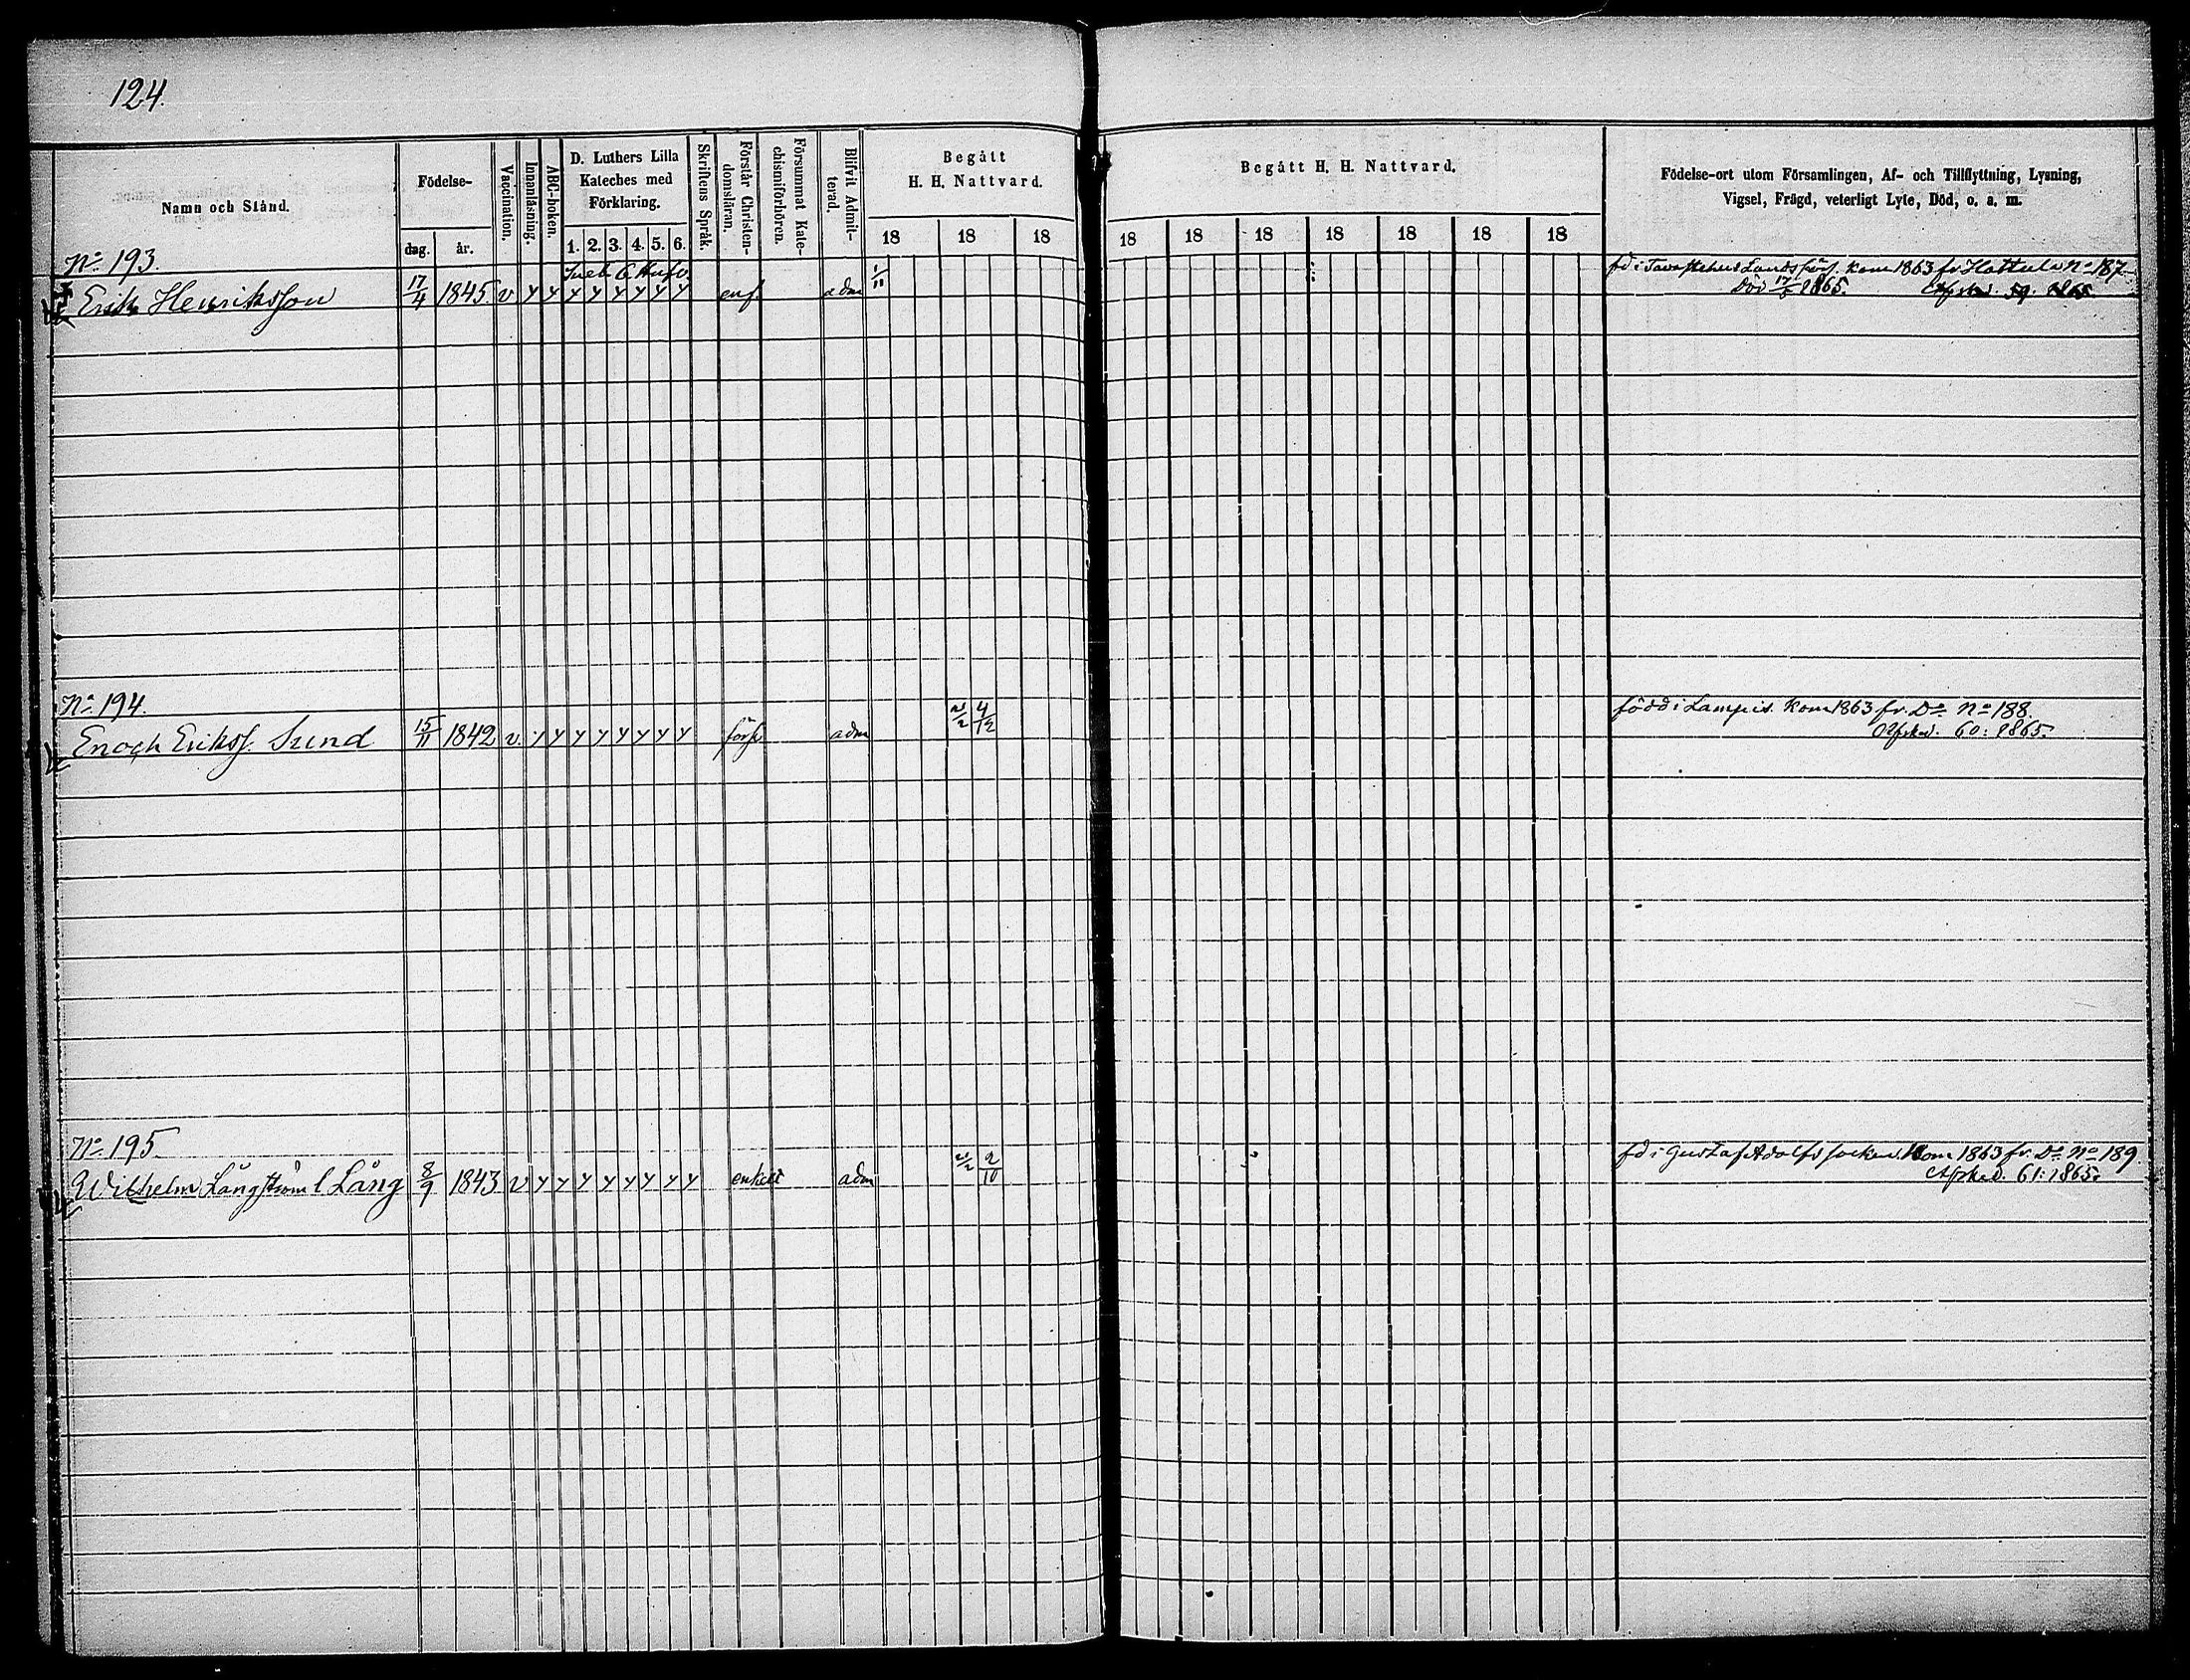 124.
Namn och Stånd.
Födelse-
dag. år.
Vaccination.
Innanläsning.
ABC-boken.
D. Luthers Lilla
Kateches med
Förklaring.
1. 2. 3. 4. 5. 6.
Skriftens Språk.
Förstår Christen-
domsläran.
Försummat Kate-
chismiförhören.
Blifvit Admit-
terad.
Begått
H. H. Nattvard.
18 18 18
Begått H. H. Nattvard.
18 18 18 18 18 18 18
Födelse-ort utom Församlingen, Af- och Tillflyttning, Lysning,
Vigsel, Frägd, veterligt Lyte, Död, o. a. m.
No 193.
fd i Tavastehus Landsförs. kom 1863 fr Hattula No 187
Erik Henriksson 17/4 1845 v y y y y y y y y enf. adm 1/11
Död 1865. Afsked. 59. 1865.
No 194. född i Lampis. kom 1863 fr. Do No 188.
Enoch Erikss. Sund 15/11 1842 v. y y y y y y y y förs adm 4/12
Afsked. 60: 1865.
No 195. fd i Gustaf Adolfs socken. Kom 1863 fr. Do No 189.
Wilhelm Långström l Lång 8/9 1843 v y y y y y y y y enkelt adm 2/10
Afsked. 61: 1865.